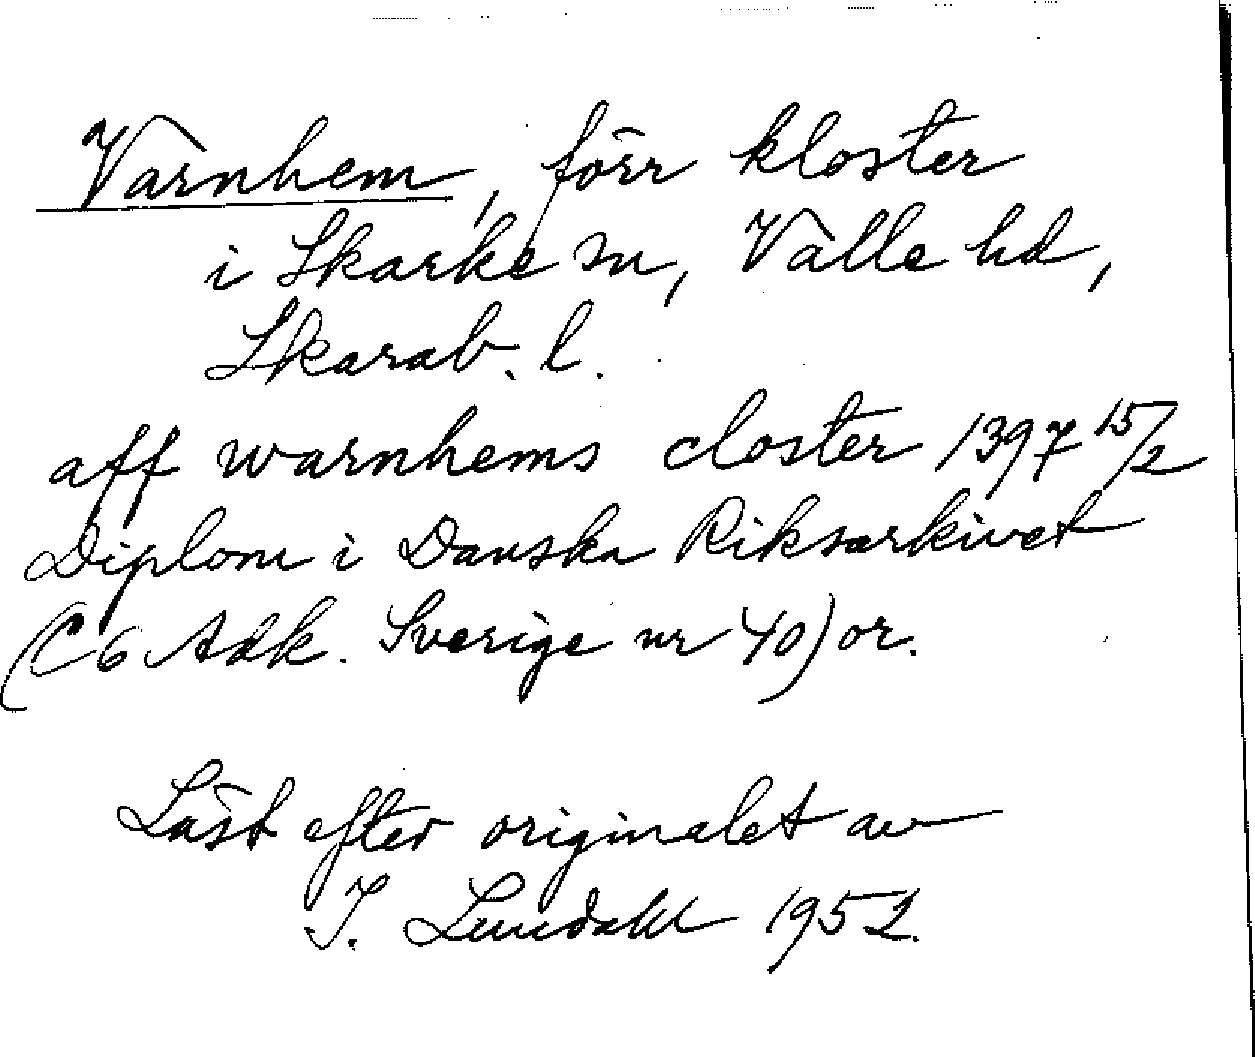 Varnhem, förr kloster
i Skarke sn, Valle hd,
Skarab. l.
aff warnhems closter 1397 15/2
Diplom i Danska Riksarkivet
(C6 Adk. Sverige nr 40) or.
Läst efter originalet av
I. Lundahl 1952.